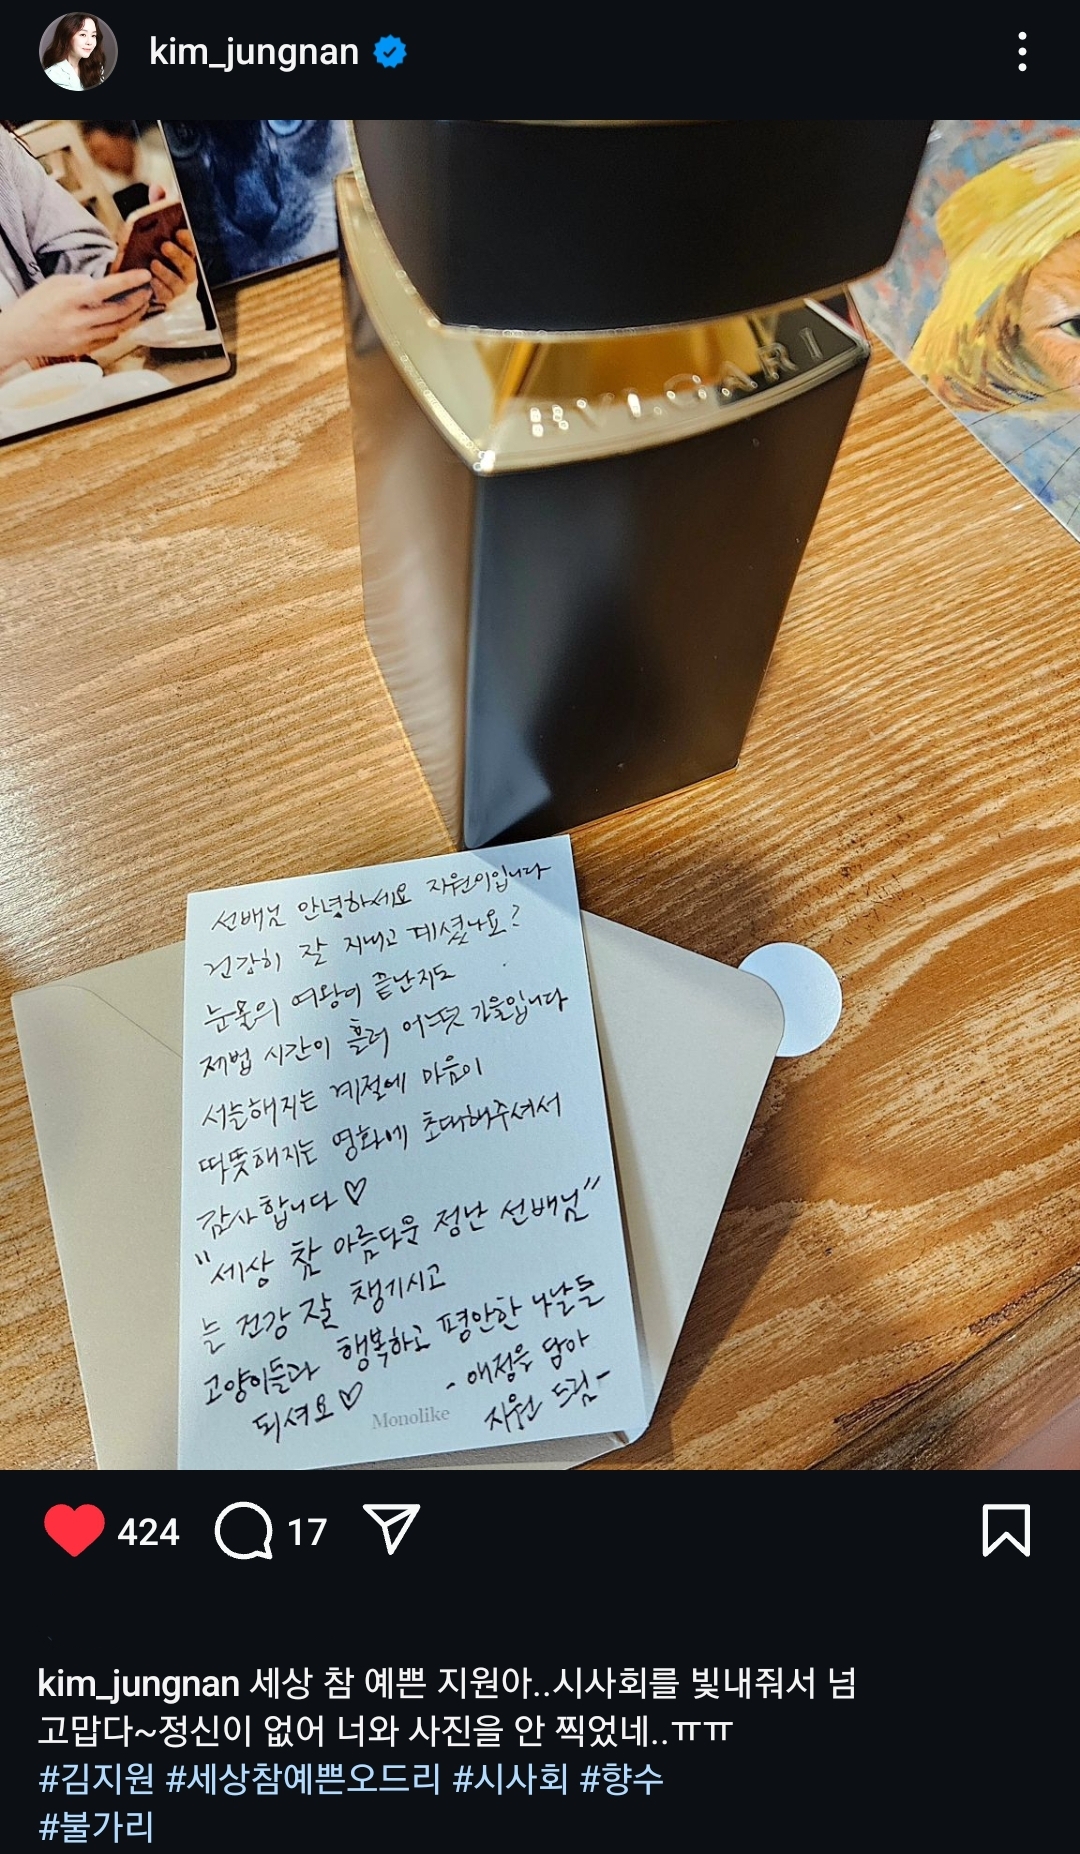 kim_jungnan
BVLGARI
선배님 안녕하세요 지원이입니다
건강히 잘 지내고 계셨나요?
눈물의 여왕이 끝난지도
제법 시간이 흘러 어느덧 가을입니다
서늘해지는 계절에 마음이
따뜻해지는 영화에 초대해주셔서
감사합니다♡
"세상 참 아름다운 정난 선배님"
는 건강 잘 챙기시고
고양이들과 행복하고 평안한 나날들
되셔요♡
- 애정을 담아
지원 드림-
Monolike
424 17
kim_jungnan 세상 참 예쁜 지원아..시사회를 빛내줘서 넘
고맙다~정신이 없어 너와 사진을 안 찍었네..ㅠㅠ
#김지원 #세상참예쁜오드리 #시사회 #향수
#불가리